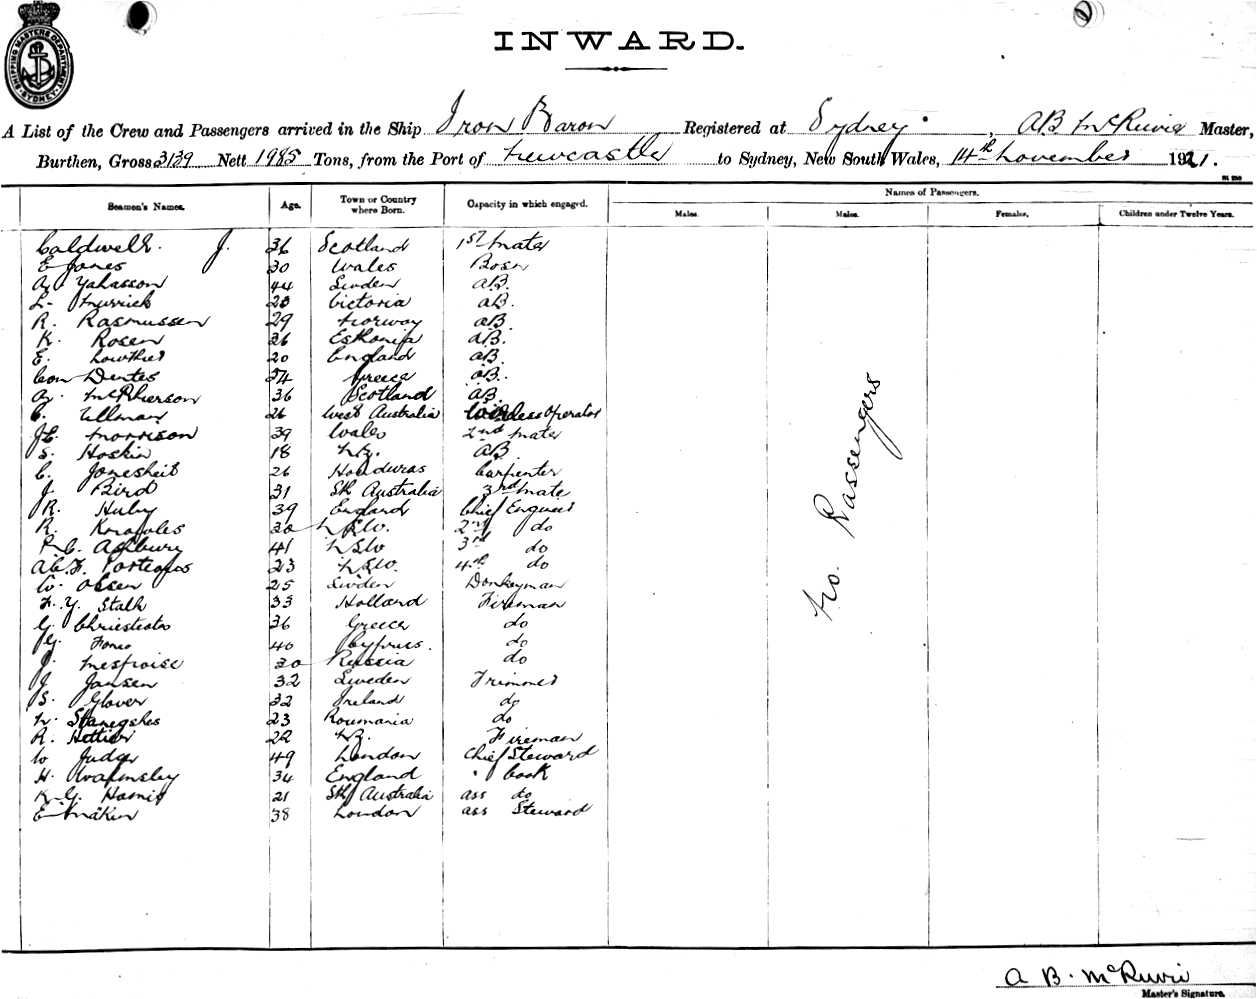 SHIPPING MASTERS DEPARTMENT SYDNEY
INWARD.
A List of the Crew and Passengers arrived in the Ship Iron Baron Registered at Sydney, A B McRuvie Master,
Burthen, Gross 3129 Nett 1985 Tons, from the Port of Newcastle to Sydney, New South Wales, 14th November 1921.
Seamen's Names. Age. Town or Country where Born. Capacity in which engaged. Names of Passengers.
Males. Males. Females. Children under Twelve Years.
Caldwell. J. 36 Scotland 1st Mate
E Jones 30 Wales Bosn
A Yahasson 44 Sweden AB.
L. Murrick Victoria AB.
R. Rasmussen 29 Norway AB
K. Rosen 26 Esthonia AB.
E. Lowther 20 England AB
Con Dentes 24 Greece AB.
A. McPherson 36 Scotland AB
C. Ullman 26 West Australia Wireless Operator
J.C. Morrison 39 Wales 2nd Mate
S. Hoskin 18 N.Z. AB
C. 26 Honduras Carpenter
J. Bird 31 Sth Australia 3rd Mate
R. Huby 39 England Chief Engineer
R. 30 NSW. 2nd do
R.C. Ashbury 41 NSW 3rd do
A.C.F. Porteous 23 NSW. 4th do
W. Olsen 25 Sweden Donkeyman
F. Y. Stalk 33 Holland Fireman
G. 36 Greece do
G. 40 Cyprus. do
J. 30 Russia do
J. Jansen 32 Sweden Trimmer
S. Glover 32 Ireland do
N. 23 Roumania do
R. Hettier 22 N.Z. Fireman
W Judge 49 London Chief Steward
H. Walmsley 34 England " Cook
K.G. Harris 21 Sth Australia ass do
E Makin 38 London ass Steward
No. Passengers
A B. McRuvie
Master's Signature.